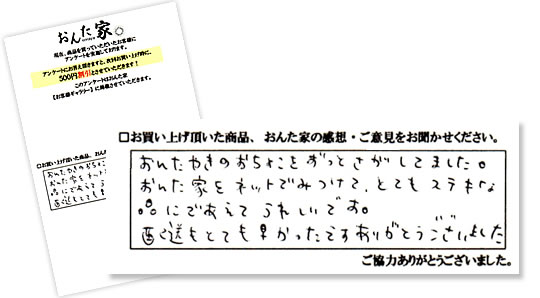 おんた家
現在、商品を買っていただいたお客様に
アンケートを実施しております。
アンケートにお答え頂きますと、次回お買い上げ時に、
500円割引とさせていただきます!
このアンケートはおんた家
【お客様ギャラリー】に掲載させていただきます。
□お買い上げ頂いた商品、おん
□お買い上げ頂いた商品、おんた家の感想・ご意見をお聞かせください。
おんたやきのおちょこをずっとさがしてました。
おんた家をネットでみつけて、とてもステキな
品にであえてうれしいです。
配送もとても早かったですありがとうございました
ご協力ありがとうございました。